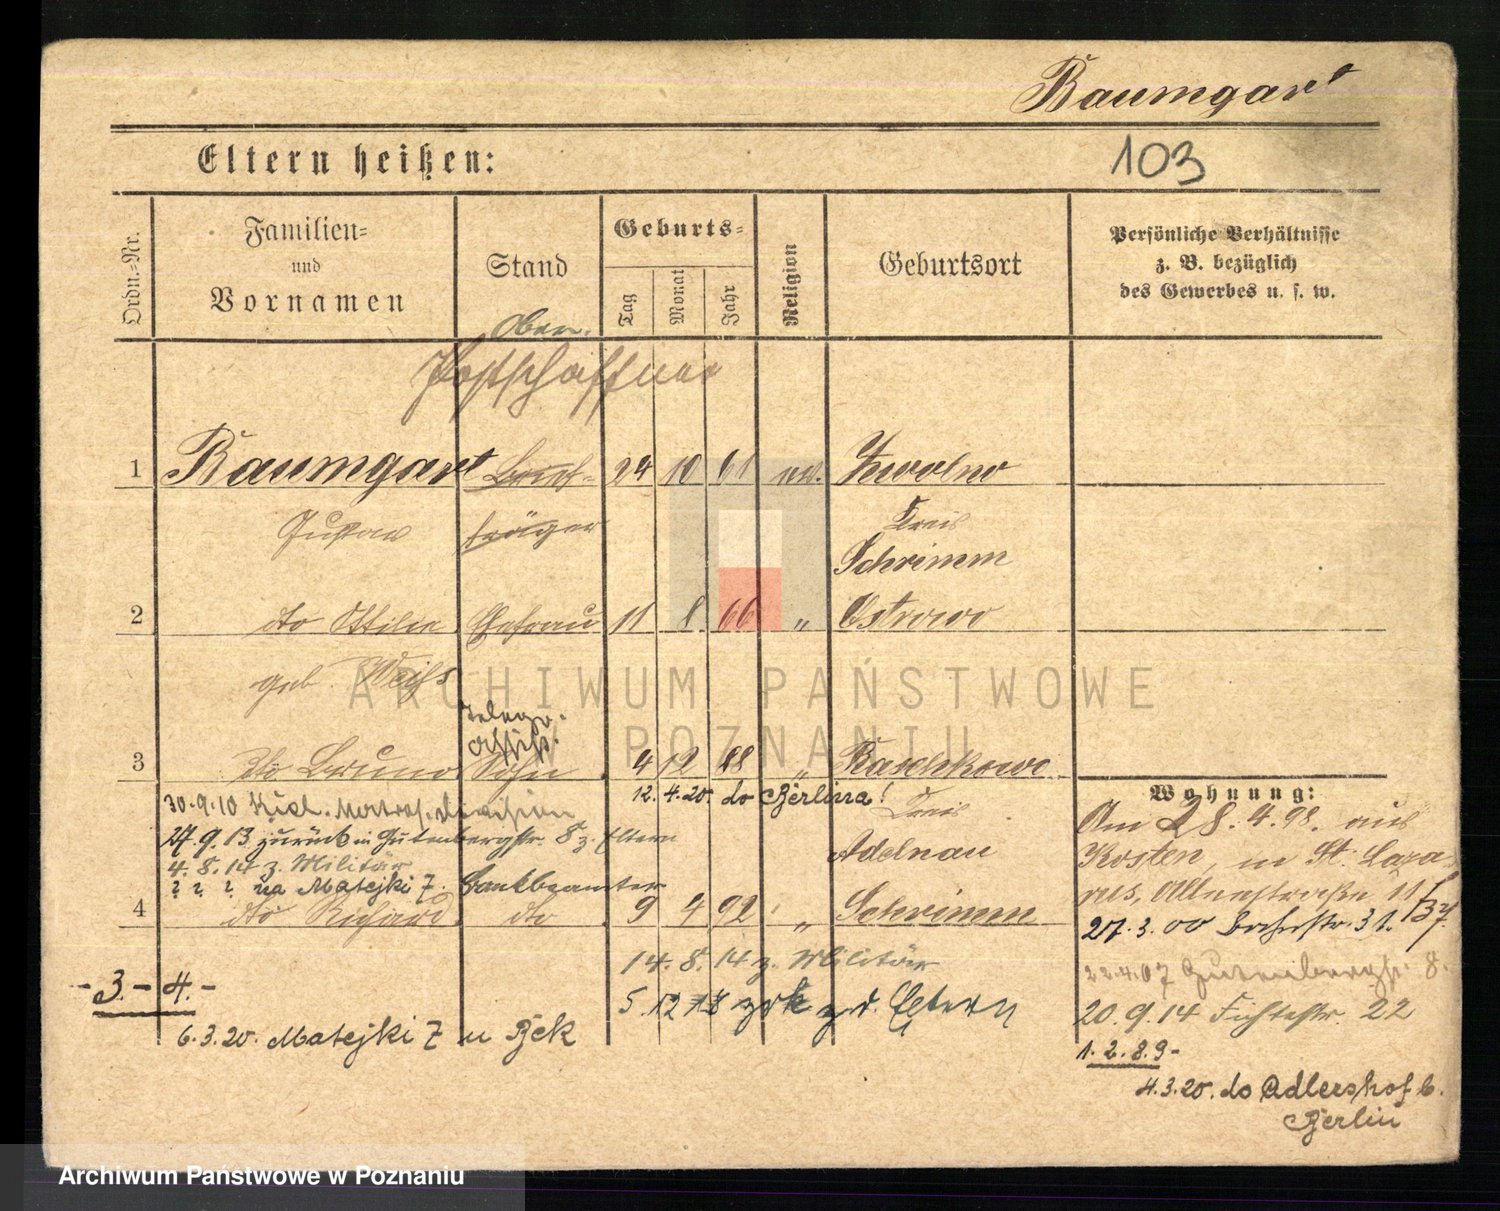 Baumgart
103
Eltern heißen:
Ordn.-Nr.
Familien-
und
Vornamen
Stand
Geburts-
Tag
Monat
Jahr
Religion
Geburtsort
Persönliche Verhältnisse
z. B. bezüglich
des Gewerbes u. s. w.
Ober-
Postschaffner
1 Baumgart Brief- 24 10 61 ev.
Gustav träger Kreis
Schrimm
2 dto Ottilie Ehefrau 11 8 66 " Ostrowo
geb. Weiss
Telegr.
Assist.
3 dto Bruno Sohn 4 12 88 " Raschkowo
12. 4. 20. do Berlina! Kreis
Adelnau
30.9.10 Kiel. Matros. Division
27.9.13 zurück in Gutenbergstr. 8 z. Eltern
4.8.14 z. Militär
? ? ? na Matejki 7. Bankbeamter
4 dto Richard dto 9 4 92 " Schrimm
14. 8. 14 z. Militär
5. 12 18 zrk z. d. Eltern
- 3. - 4. -
6.3.20. Matejki 7 u Bek
Wohnung:
Am 28. 4. 98. aus
Kosten, in St. Laza-
rus,
27. 3. 00 31.
22.4.07 Gutenbergstr. 8.
20. 9. 14 Fichtestr. 22
1. 2. 8. 9-
4.3.20. do Adlershof b.
Berlin
ARCHIWUM PAŃSTWOWE
W POZNANIU
Archiwum Państwowe w Poznaniu